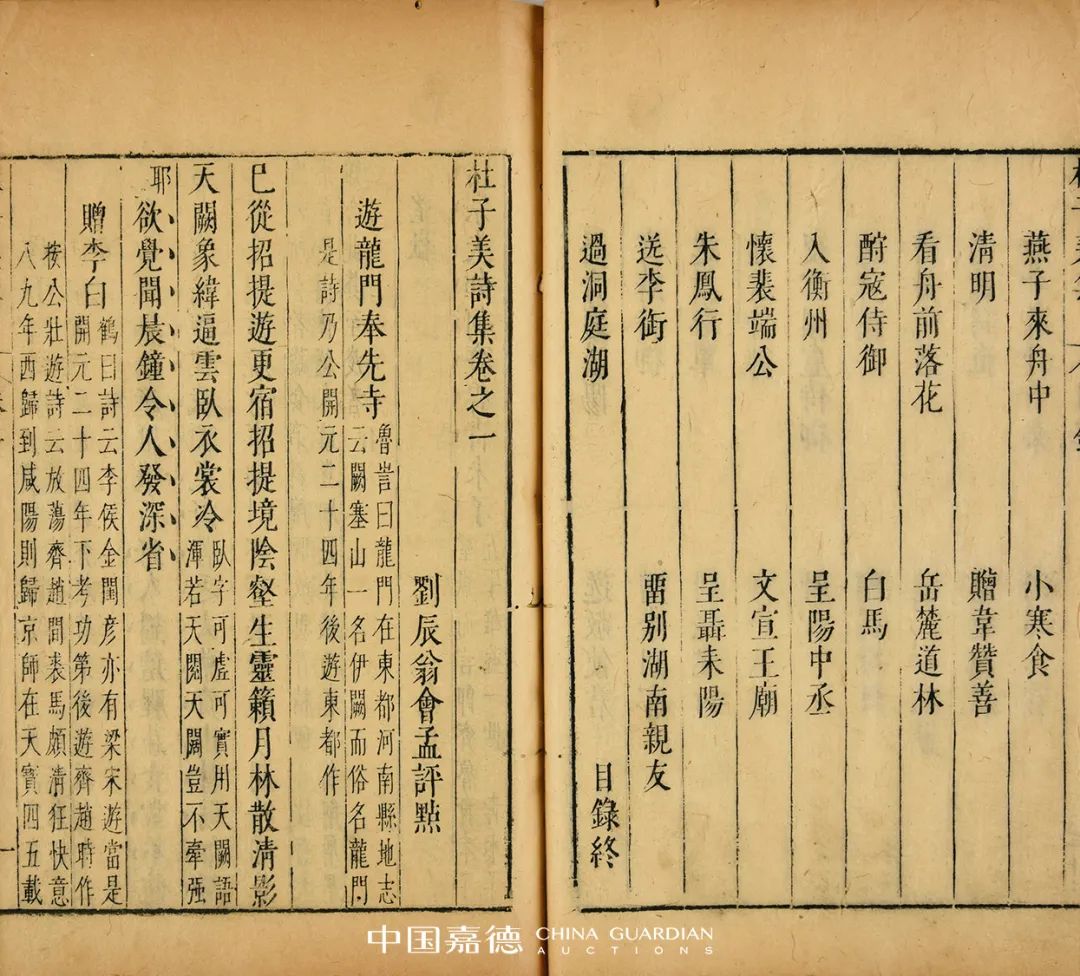 燕子來舟中 小寒食
清明 贈韋贊善
看舟前落花 岳麓道林
酧寇侍御 白馬
入衡州 呈陽中丞
懷裴端公 文宣王廟
朱鳳行 呈聶耒陽
送李銜 畱别湖南親友
過洞庭湖 目錄終
杜子美詩集卷之一
劉辰翁會孟評點
遊龍門奉先寺
魯訔曰龍門在東都河南縣地志
云闕塞山一名伊闕而俗名龍門
是詩乃公開元二十四年後遊東都作
已從招提遊更宿招提境陰壑生靈籟月林散清影
天闕象緯逼雲臥衣裳冷
臥字可虛可實用天闕語
渾若天閱天闚豈不牽强
耶
欲覺聞晨鐘令人發深省
贈李白
鶴曰詩云李侯金閨彦亦有梁宋遊當是
開元二十四年下考功第後遊齊趙時作
按公壯遊詩云放蕩齊趙間裘馬頗清狂快意
八九年西歸到咸陽則歸京師在天寶四五載
一
中国嘉德 CHINA GUARDIAN
AUCTIONS